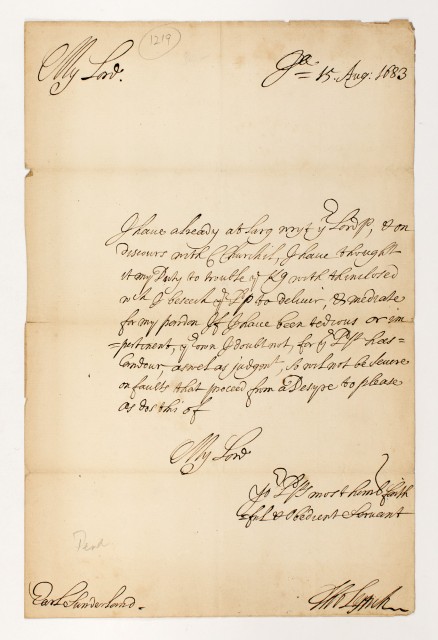 1219
My Lord.
Ja = 15. Aug: 1683
I have already at Larg wryt yr Lordp, & on
discours with C Churchil, I have thought
it my Duty to trouble ye Kg with th'inclosed
wch I beseech yr Lp to deliver, & mediate
for my pardon If I have been tedious or im
=pertinent, yr own I doubt not, for yr Lps has
Candour, aswel as judgmt, & wil not be severe
on faults that proceed from a Desyre to please
as dos this of
My Lord
Yor Lps most humb faith
=ful & Obedient Servant
Earl Sunderland.
Tho Lynch